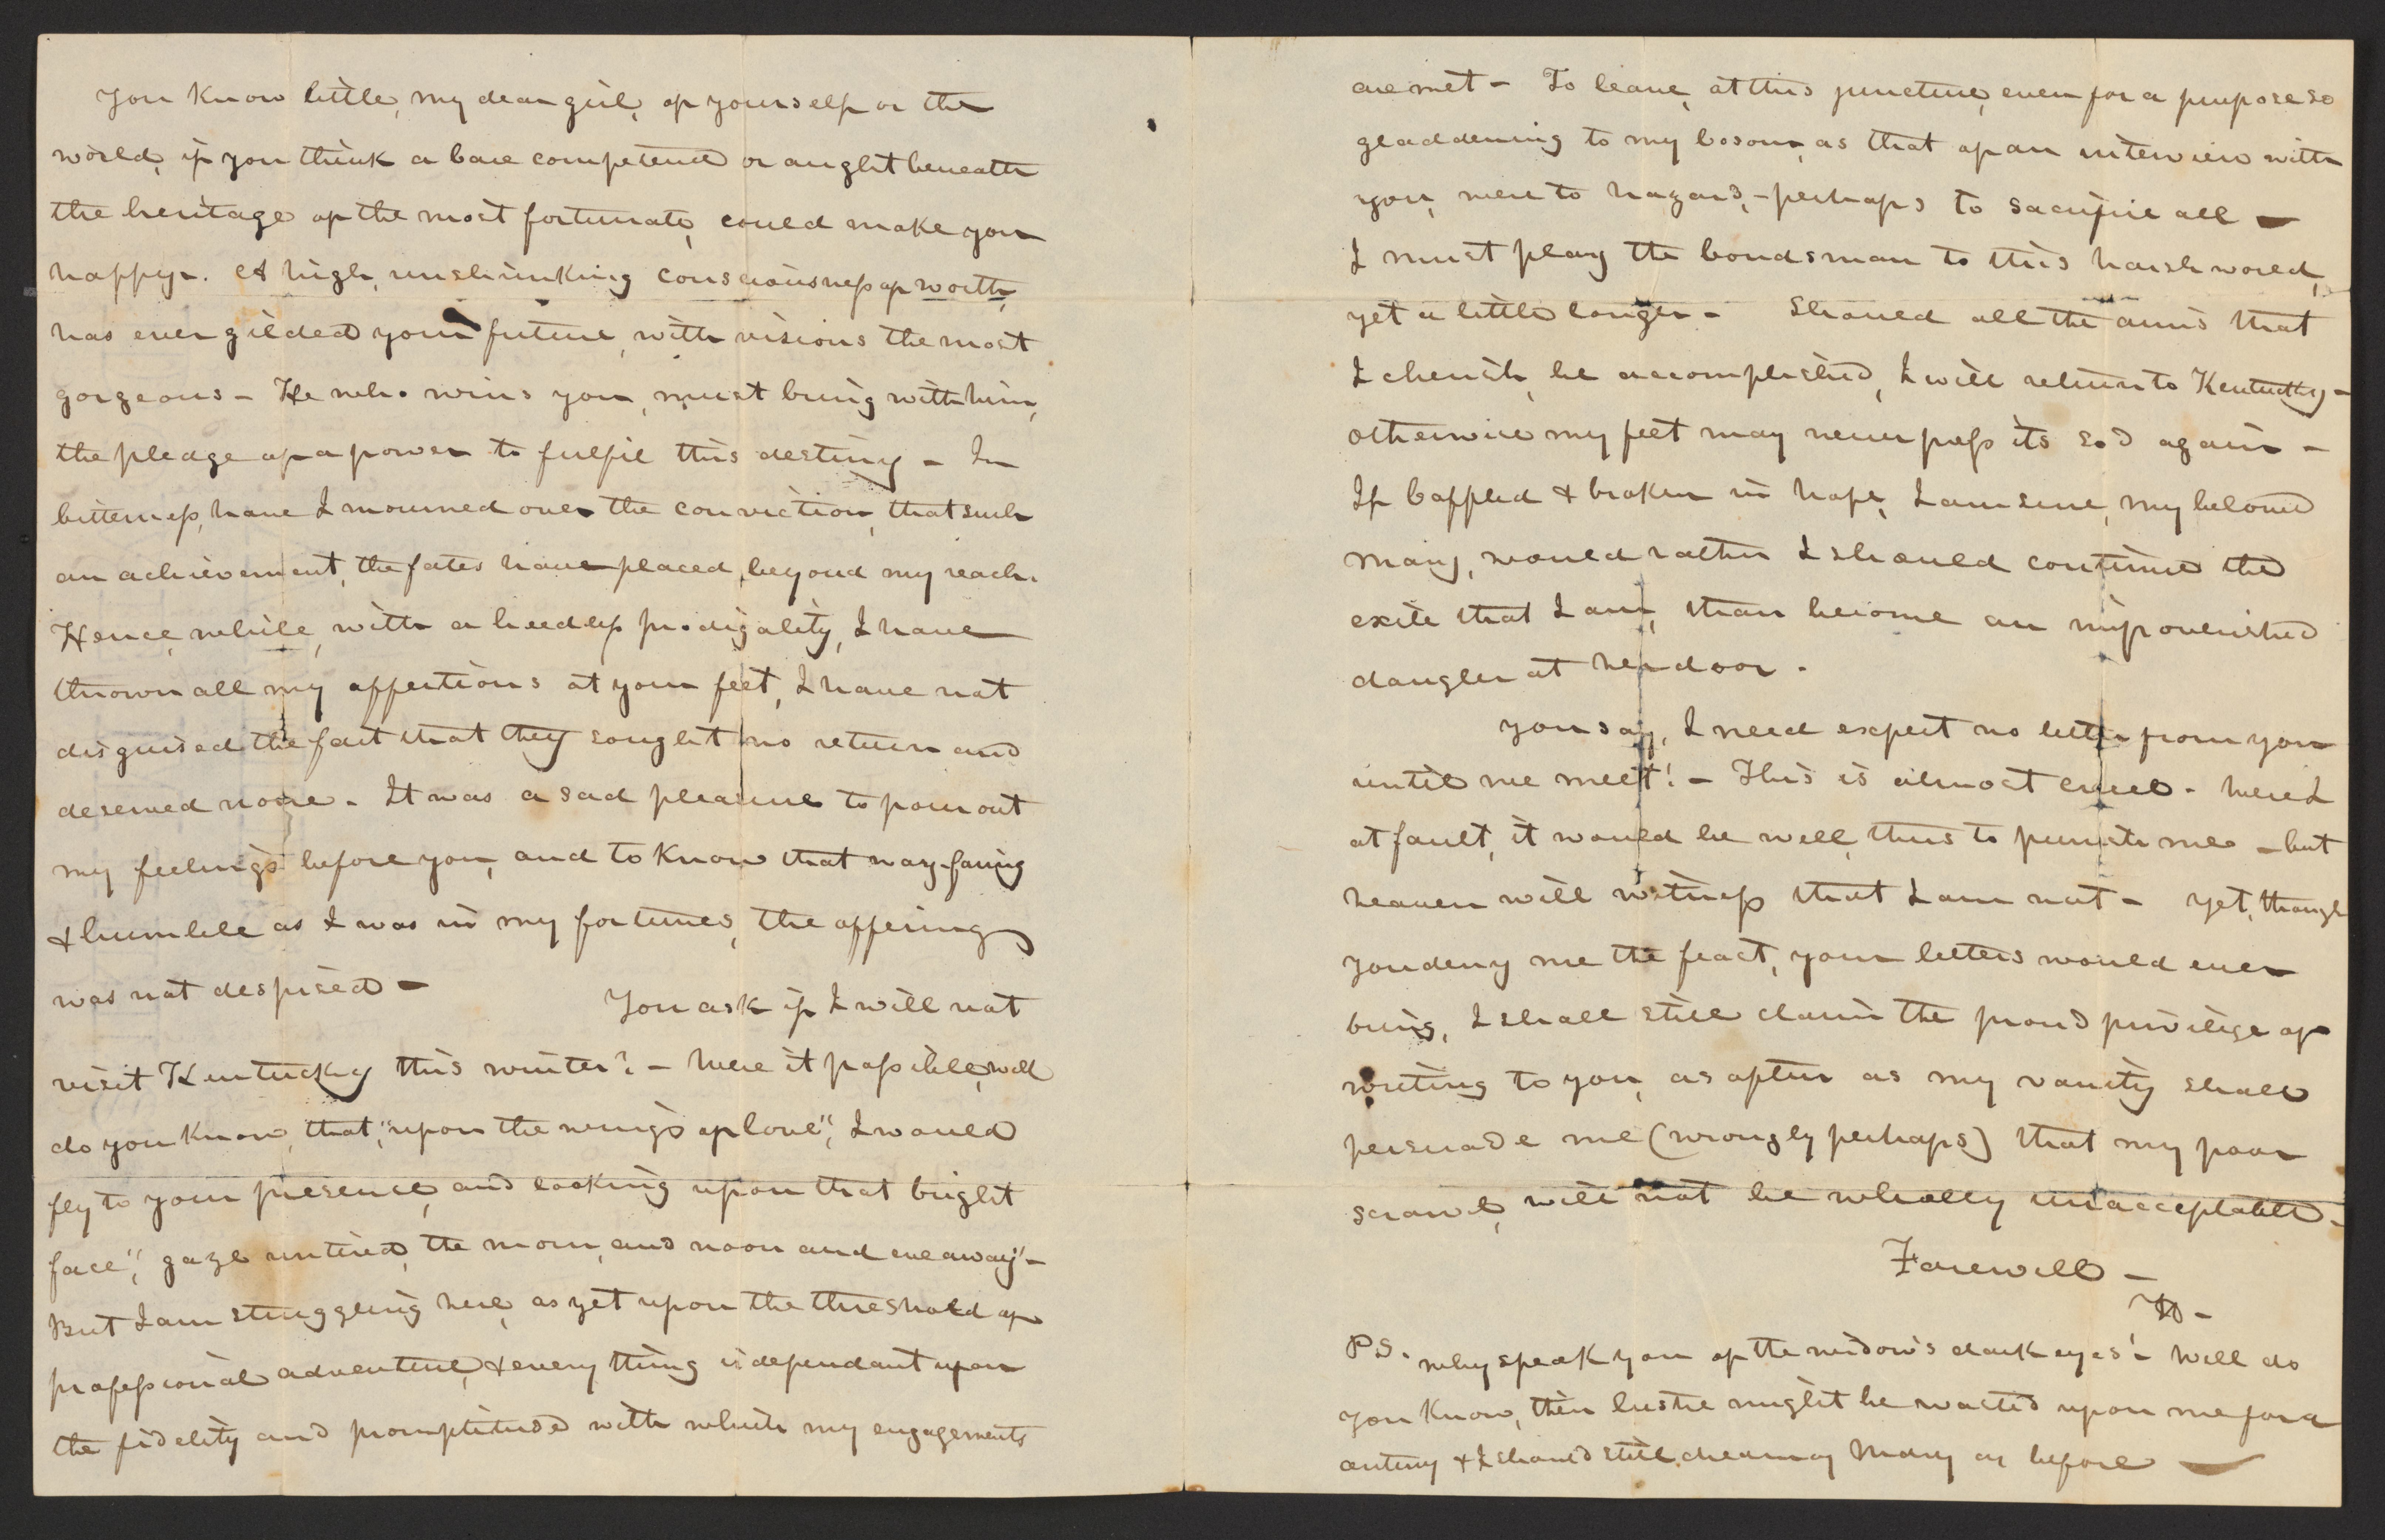 You know little, my dear girl, of yourself or the
world, if you think a bare competence or aught beneath
the heritage of the most fortunate, could make you
happy. A high, unshrinking consciousness of worth,
has ever gilded your future, with visions the most
gorgeous - He who wins you, must bring with him,
the pledge of a power to fulfil this destiny - In
bitterness, have I mourned over the conviction, that such
an achievement, the fates have placed, beyond my reach.
Hence, while, with a heedless prodigality, I have
thrown all my affections at your feet, I have not
disguised the fact that they sought no return and
deserved none. It was a sad pleasure to pour out
my feelings before you, and to know that way-faring
& humble as I was in my fortunes, the offering
was not despised -
You ask if I will not
visit Kentucky this winter? - Were it possible, well
do you know, that, "upon the wings of love", I would
fly to your presence, and looking upon that bright
face, "gaze untired, the morn, and noon and eve away" -
But I am struggling here, as yet upon the threshold of
professional adventure, & every thing is dependant upon
the fidelity and promptitude with which my engagements
are met - To leave, at this juncture, even for a purpose so
gladdening to my bosom, as that of an interview with
you, were to hazard, - perhaps to sacrifice all -
I must play the bondsman to this harsh world,
yet a little longer - Should all the aims that
I cherish, be accomplished, I will return to Kentucky -
otherwise my feet may never press its sod again -
If baffled & broken in hope, I am sure, my beloved
Mary, would rather I should continue the
exile that I am, than become an impoverished
dangler at her door.
You say, I need expect no letter from you
until we meet! - This is almost cruel. Were I
at fault, it would be well, thus to punish me - but
heaven will witness that I am not - Yet, though
you deny me the feast, your letters would ever
bring, I shall still claim the proud privilege of
writing to you, as often as my vanity shall
persuade me (wrongly perhaps) that my poor
scrawl, will not be wholly unacceptable -
Farewell -
PS. Why speak you of the widow's dark eyes! - Well do
you know, their lustre might be wasted upon me for a
century & I should still dream of Mary as before -